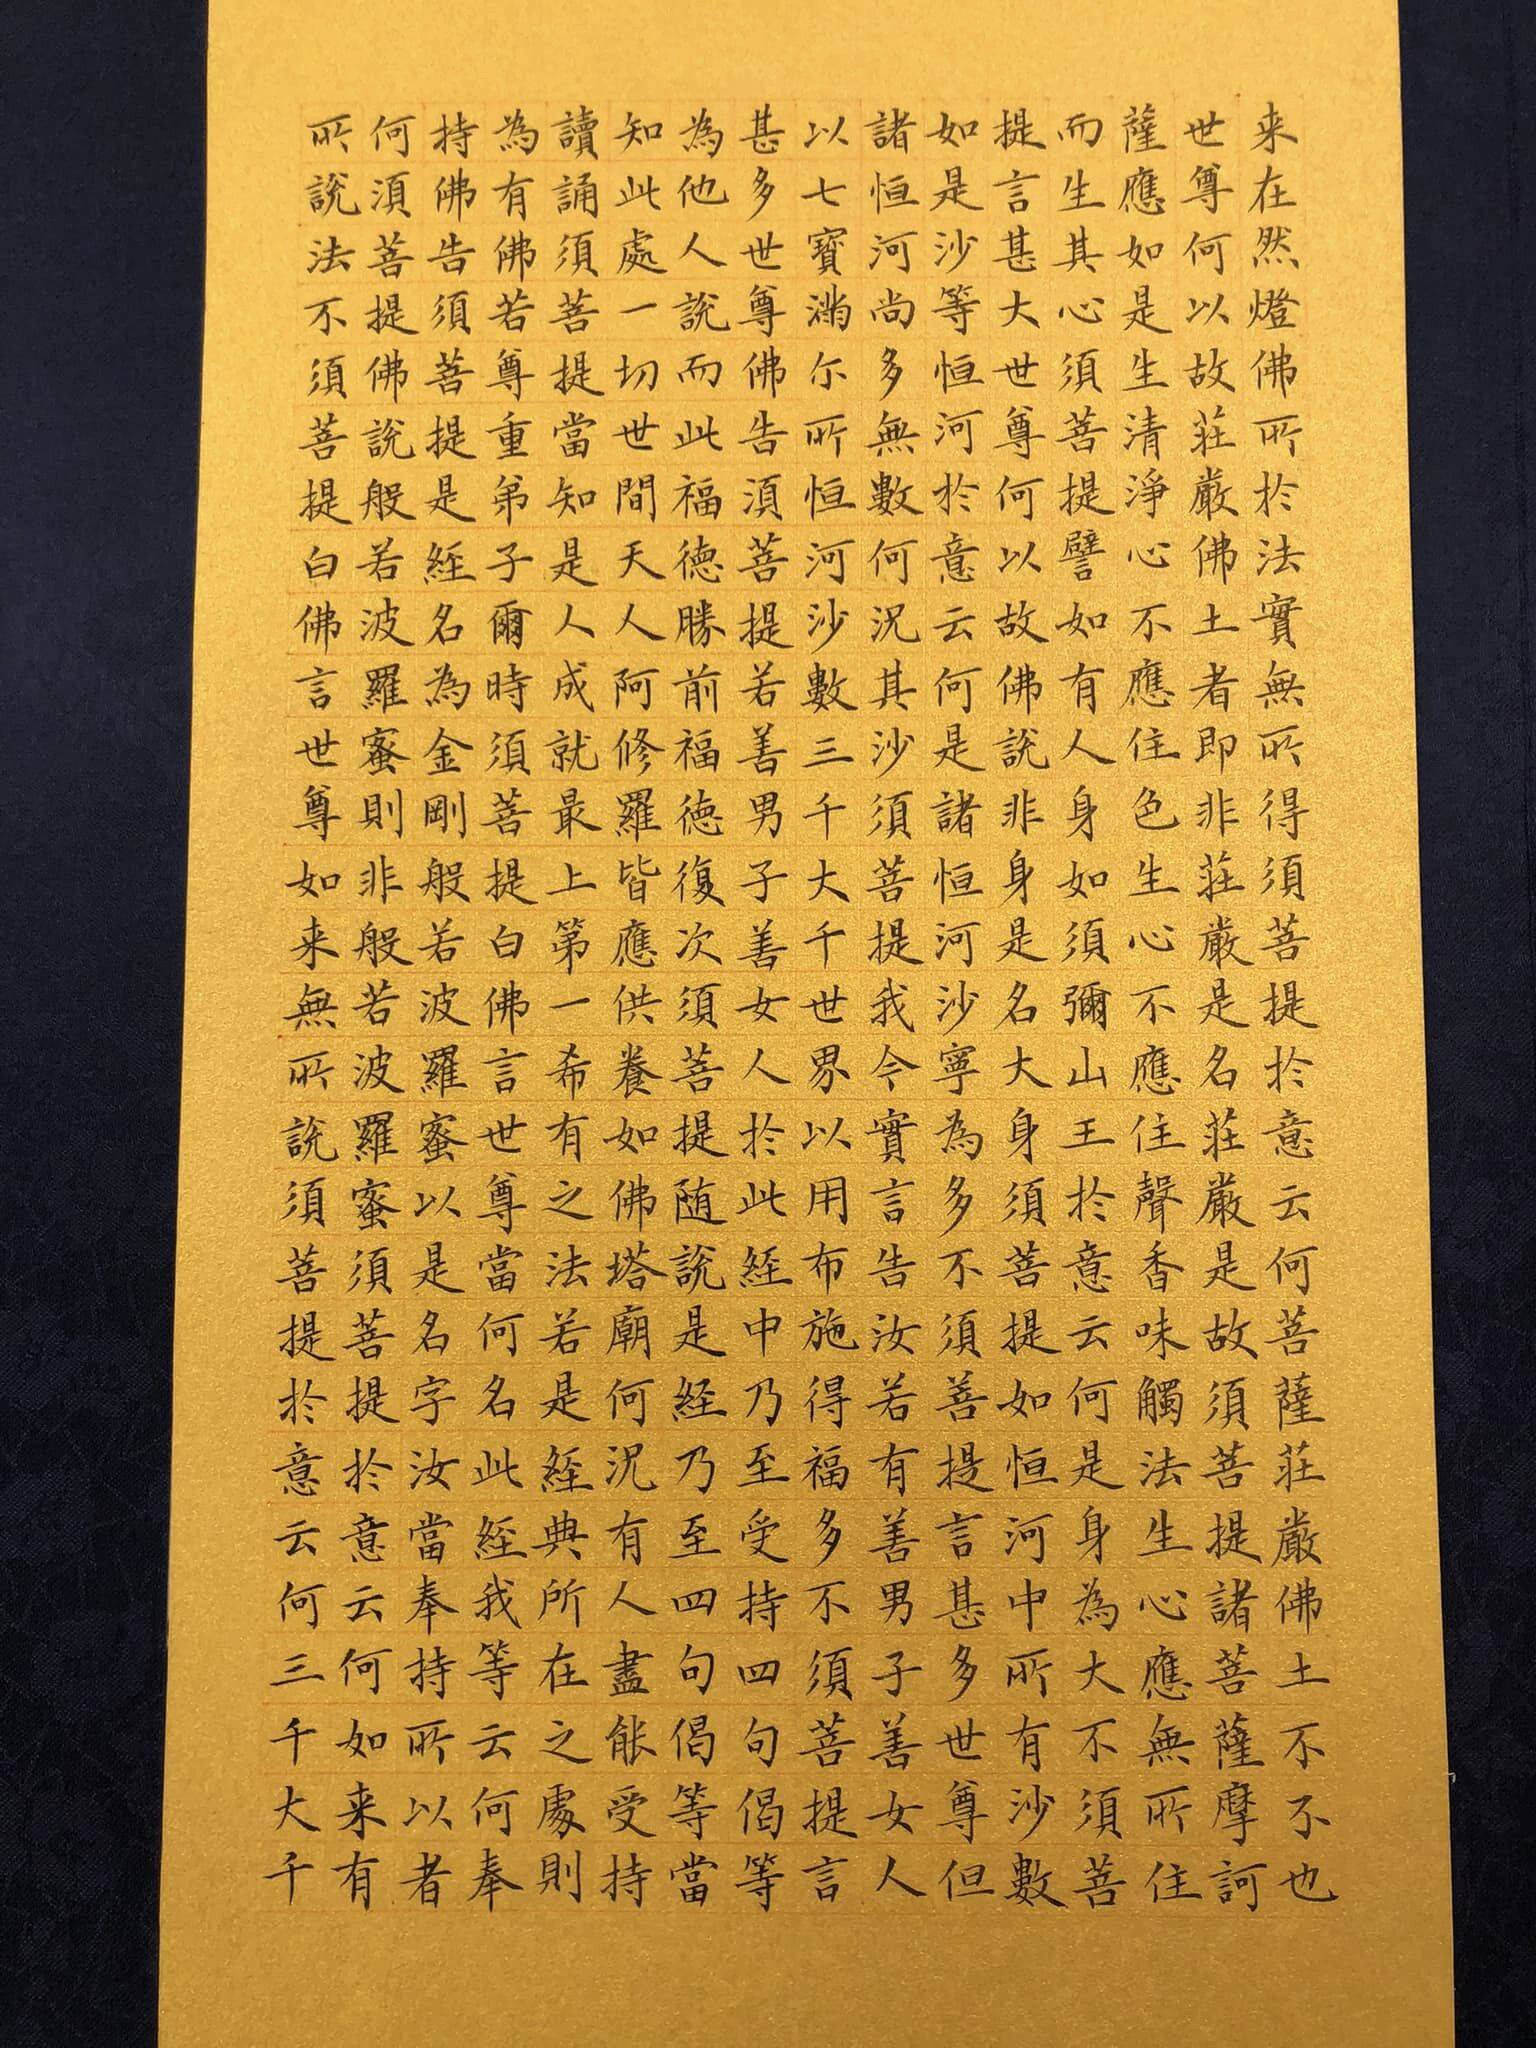 来在然燈佛所於法實無所得須菩提於意云何菩薩莊嚴佛土不不也
世尊何以故莊嚴佛土者即非莊嚴是名莊嚴是故須菩提諸菩薩摩訶
薩應如是生清淨心不應住色生心不應住聲香味觸法生心應無所住
而生其心須菩提譬如有人身如須彌山王於意云何是身為大不須菩
提言甚大世尊何以故佛說非身是名大身須菩提如恒河中所有沙數
如是沙等恒河於意云何是諸恒河沙寧為多不須善提言甚多世尊但
諸恒河尚多無數何況其沙須菩提我今實言告汝若有善男子善女人
以七寶滿尔所恒河沙數三千大千世界以用布施得福多不須菩提言
甚多世尊佛告須菩提若善男子善女人於此經中乃至受持四句偈等
為他人說而此福德勝前福德復次須菩提随說是経乃至四句偈等當
知此處一切世間天人阿修羅皆應供養如佛塔廟何況有人盡能受持
讀誦須菩提當知是人成就最上第一希有之法若是經典所在之處則
為有佛若尊重弟子爾時須菩提白佛言世尊當何名此經我等云何奉
持佛告須菩提是經名為金剛般若波羅蜜以是名字汝當奉持所以者
何須菩提佛說般若波羅蜜則非般若波羅蜜須菩提於意云何如来有
所說法不須菩提白佛言世尊如来無所說須菩提於意云何三千大千